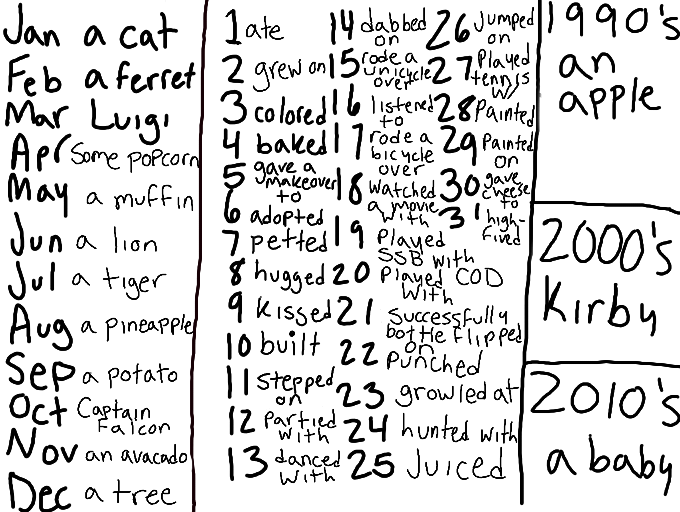 Jan a cat
Feb a ferret
Mar Luigi
Apr Some popcorn
May a muffin
Jun a lion
Jul a tiger
Aug a pineapple
Sep a potato
Oct Captain
Falcon
Nov an avacado
Dec a tree
1 ate
2 grew on
3 colored
4 baked
5 gave a
makeover
to
6 adopted
7 petted
8 hugged
9 kissed
10 built
11 stepped
on
12 partied
with
13 danced
with
14 dabbed
on
15 rode a
unicycle
over
16 listened
to
17 rode a
bicycle
over
18 watched
a movie
with
19 played
SSB with
20 played COD
with
21 successfully
bottle flipped
on
22 punched
23 growled at
24 hunted with
25 juiced
26 jumped
on
27 played
tennis
w/
28 painted
29 painted
on
30 gave
cheese
to
31 high-
fived
1990's
an
apple
2000's
Kirby
2010's
a baby